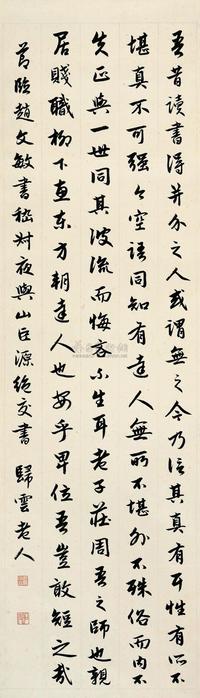 吾昔讀書得并介之人或謂無之今乃信其真有耳性有所不
堪真不可强今空語同知有達人無所不堪外不殊俗而內不
失正與一世同其波流而悔吝不生耳老子莊周吾之師也親
居賤職柳下惠東方朔達人也安乎卑位吾豈敢短之哉
節臨趙文敏書嵇叔夜與山巨源絕交書 歸雲老人